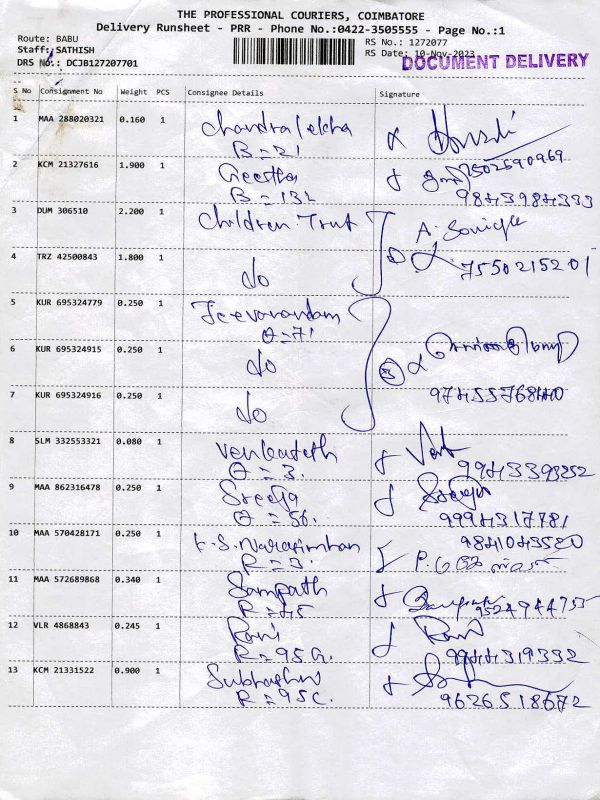 THE PROFESSIONAL COURIERS, COIMBATORE
Delivery Runsheet - PRR - Phone No.:0422-3505555 - Page No.:1
Route: BABU
RS No.: 1272077
Staff: SATHISH
RS Date: 10-Nov-2023
DOCUMENT DELIVERY
DRS No.: DCJB127207701
S No Consignment No Weight PCS Consignee Details Signature
1 MAA 288020321 0.160 1 Chandralekha
B = 21
2 KCM 21327616 1.900 1 Geetha
7502690969
B = 132 9843984333
3 DUM 306510 2.200 1 Children Trust
4 TRZ 42500843 1.800 1 do 7550215201
5 KUR 695324779 0.250 1 Jeevanandam
Q = 71
6 KUR 695324915 0.250 1 do
7 KUR 695324916 0.250 1 do
8 SLM 332553321 0.080 1 Venkatesh
Q = 3.
9 MAA 862316478 0.250 1 Sreeja
Q = 56. 9994317781
10 MAA 570428171 0.250 1 K.S. Narasimhan
9841043520
R = 3.
11 MAA 572689868 0.340 1 Sampath
R = 45 9524944755
12 VLR 4868843 0.245 1 Ravi Ravi
R = 95 G. 9944319332
13 KCM 21331522 0.900 1 Subhashini
R = 95 C. 9626518672